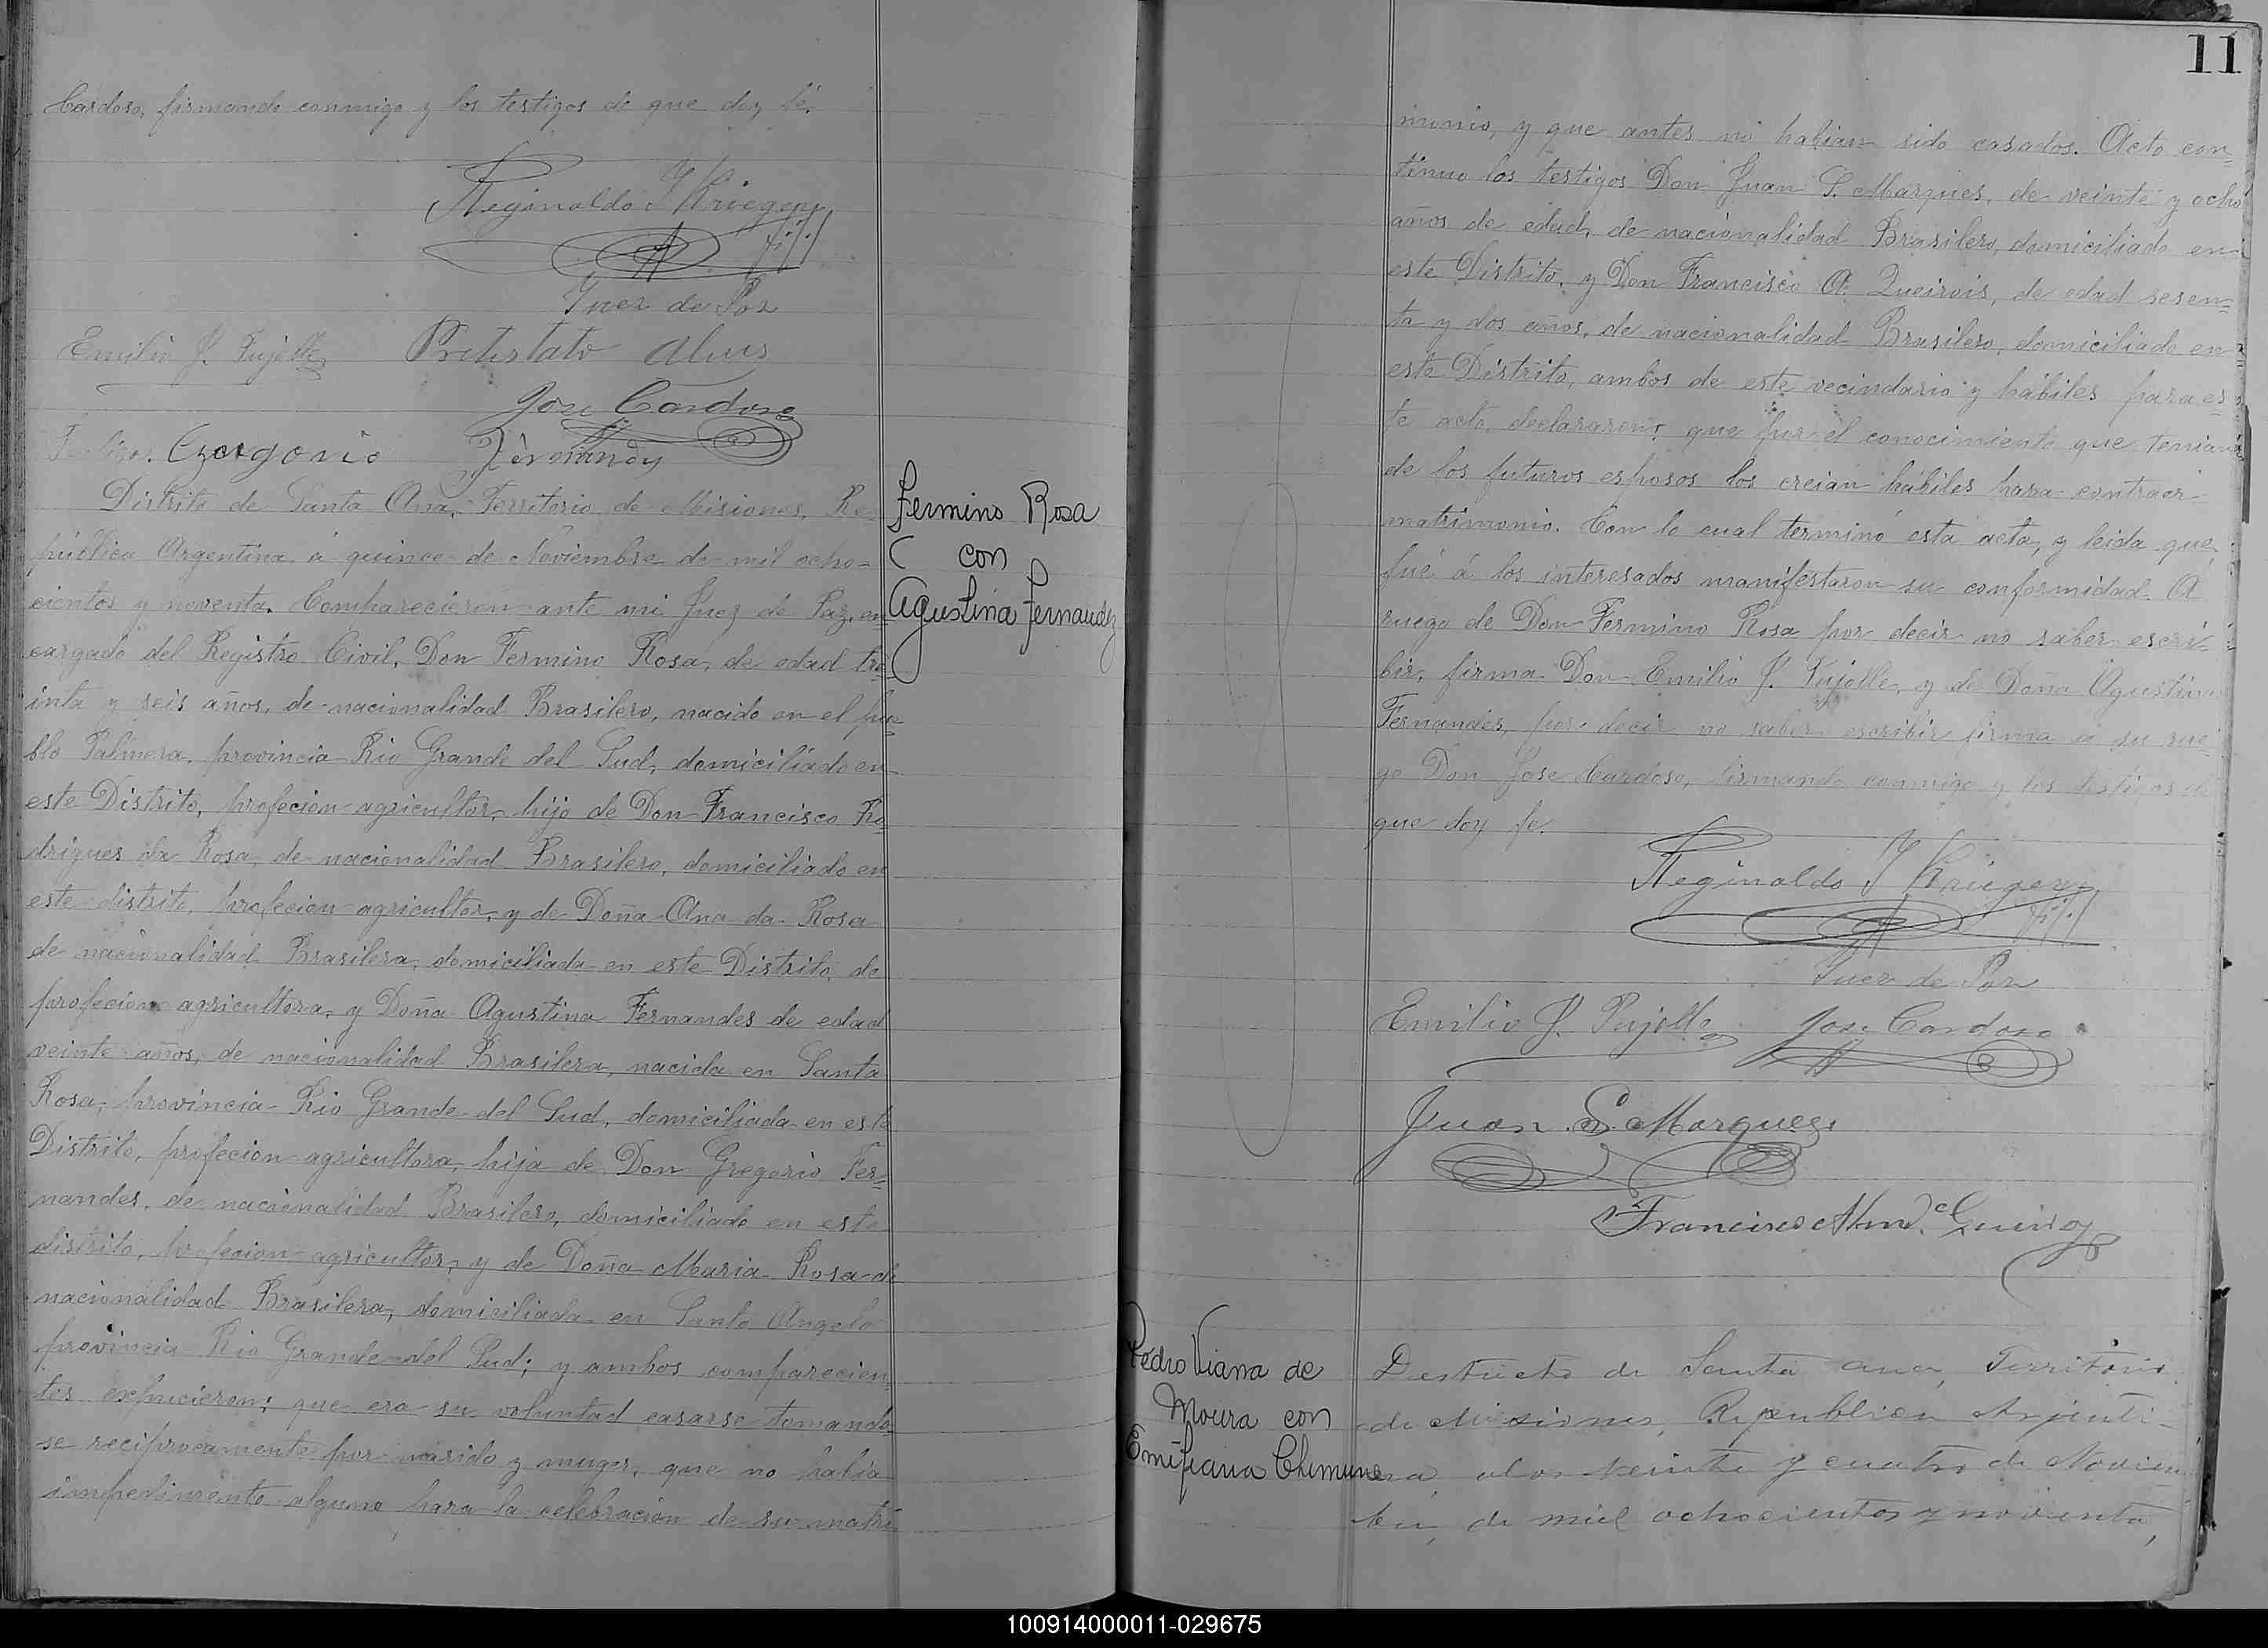 Cardoso, firmando conmigo y los testigos de que doy fé.
Reginaldo J Krieger
Juez de Paz
Emilio J. Pujolle Pretestato Alves
Jose Cardoso
Gorgonio
Distrito de Santa Ana, Territorio de Misiones, Re-
pública Argentina á quince de Noviembre de mil ocho=
cientos y noventa. Comparecieron ante mi Juez de Paz, en
cargado del Registro Civil, Don Fermino Rosa, de edad tre
inta y seis años, de nacionalidad Brasilero, nacido en el pue
blo Palmera, provincia Rio Grande del Sud, domiciliado en
este Distrito, profecion agricultor, hijo de Don Francisco Ro
drigues da Rosa, de nacionalidad Brasilero, domiciliado en
este distrito, profecion agricultor, y de Doña Ana da Rosa
de nacionalidad Brasilera, domiciliada en este Distrito, de
profecion agricultora, y Doña Agustina Fernandes de edad
veinte años, de nacionalidad Brasilera, nacida en Santa
Rosa, provincia Rio Grande del Sud, domiciliada en este
Distrito, profecion agricultora, hija de Don Gregorio Fer=
nandes, de nacionalidad Brasilero, domiciliado en este
distrito, profecion agricultor, y de Doña Maria Rosa de
nacionalidad Brasilera, domiciliada en Santo Angelo
provincia Rio Grande del Sud; y ambos comparecien=
tes expucieron; que era su voluntad casarse tomando
se reciprocamente por marido y muger, que no habia
impedimento alguno para la celebracion de su matri
Fermino Rosa
con
Agustina Fernandez
11
monio, y que antes no habian sido casados. Acto con=
tinuo los testigos Don Juan S. Marques, de veinte y ocho
años de edad, de nacionalidad Brasilero, domiciliado en
este Distrito, y Don Francisco A. Queirois, de edad sesen=
ta y dos años, de nacionalidad Brasilero, domiciliado en
este Distrito, ambos de este vecindario y habiles para es
te acto, declararon; que por el conocimiento que tenian
de los futuros esposos los creian hábiles para contraer
matrimonio. Con lo cual terminó esta acta, y leida que
fué á los interesados manifestaron su conformidad. A
ruego de Don Fermino Rosa por decir no saber escri-
bir, firma Don Emilio J. Pujolle, y de Doña Agustina
Fernandes, por decir no saber escribir firma a su rue
go Don Jose Cardoso, firmando conmigo y los testigos de
que doy fe.
Reginaldo J Krieger
Juez de Paz
Emilio J. Pujolle Jose Cardoso
Juan S. Marques
Francisco
Pedro Viana de
Moura con
Emifiana Chimune
Destricto de Santa ana, Territorio
de Misiones, Republica Arjenti-
na, alos veinte y cuatro de Noviem
bre, de miel ochocientos y novienta,
100914000011-029675